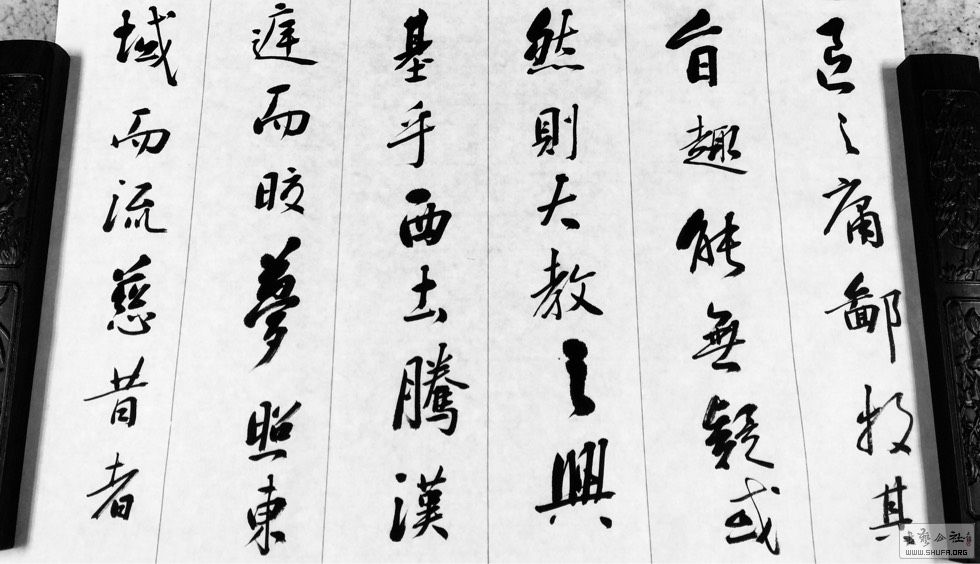 區々庸鄙投其
旨趣能無疑或
然則大教之興
基乎西土騰漢
庭而晈夢照東
域而流慈昔者
書藝公社
WWW.SHUFA.ORG